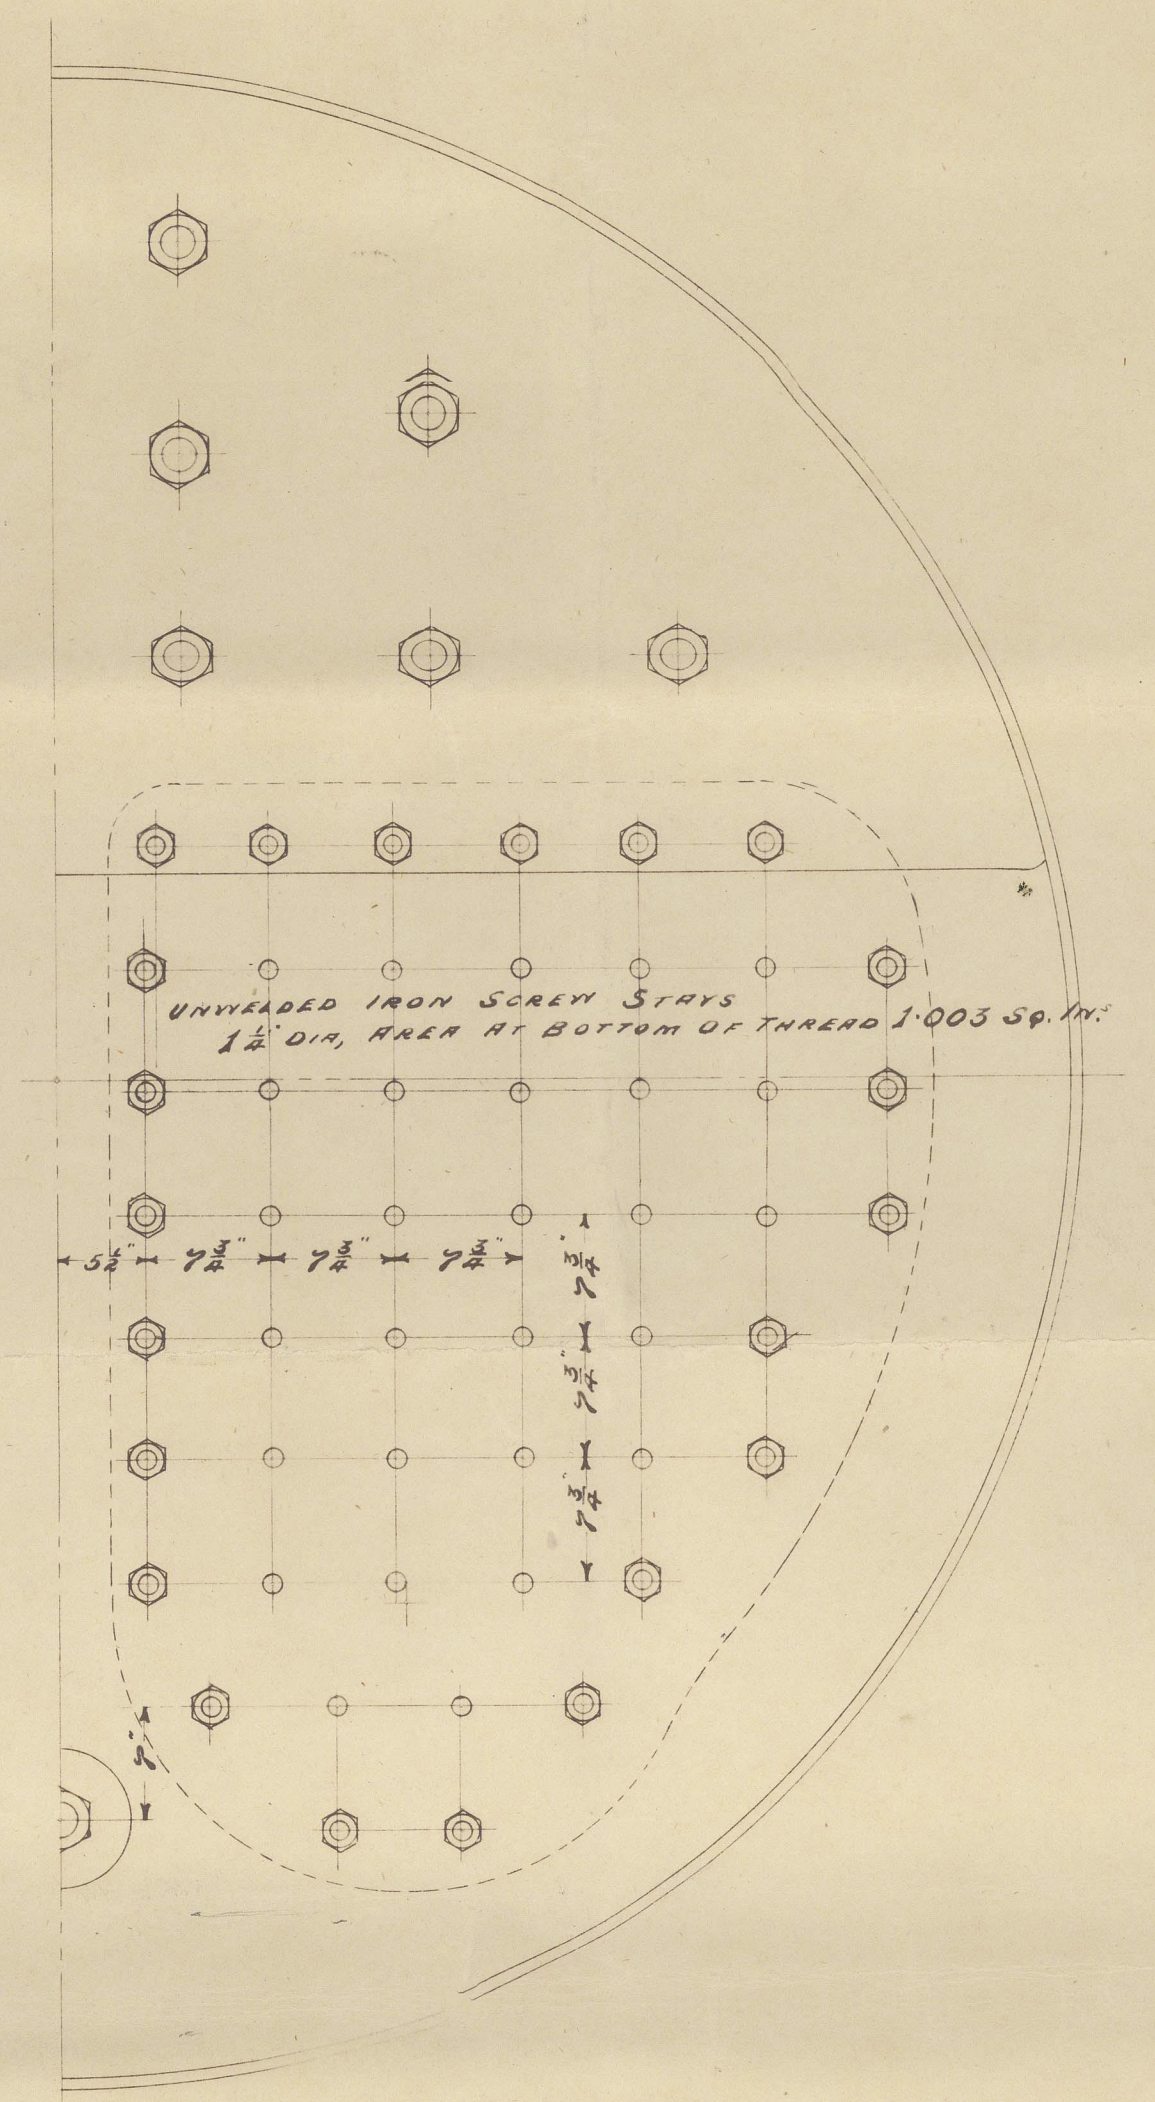 UNWELDED IRON SCREW STAYS
1 1/4" DIA, AREA AT BOTTOM OF THREAD 1·003 SQ. INS
5 1/2" 7 3/4" 7 3/4" 7 3/4"
7 3/4"
7 3/4"
7 3/4"
7"